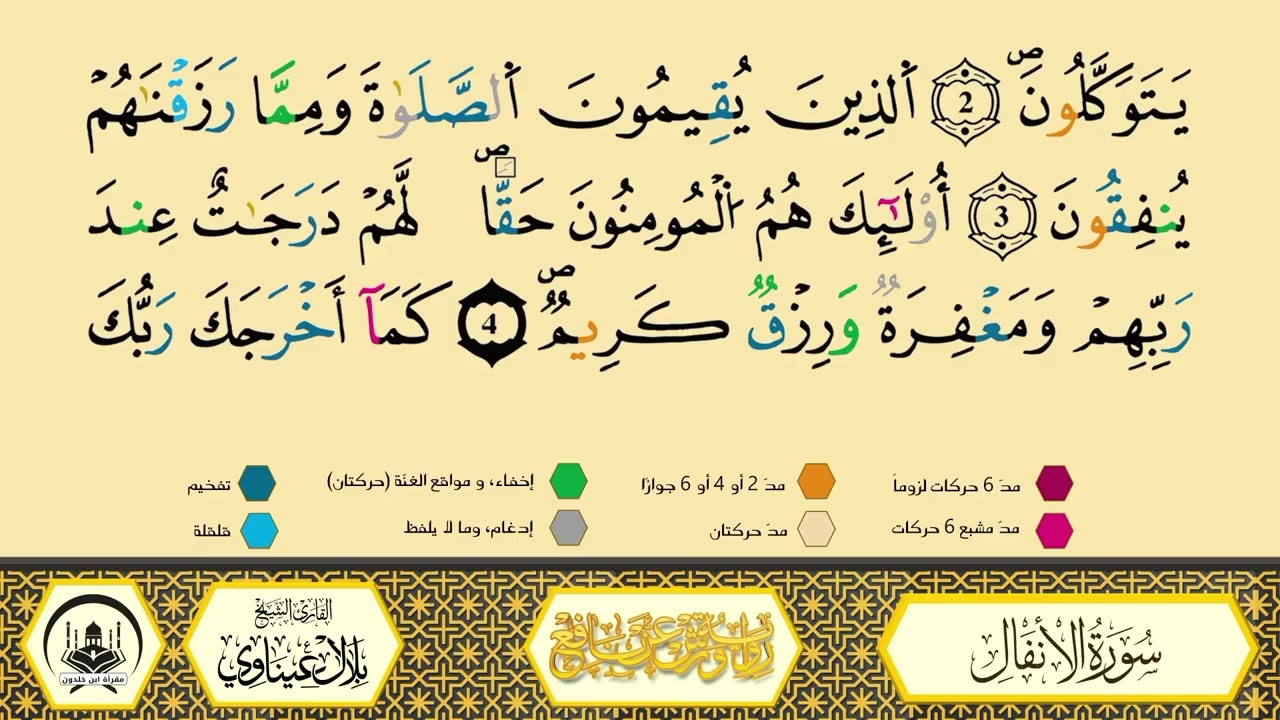 يَتَوَكَّلُونَ ۖ 2 اَ۬لذِينَ يُقِيمُونَ اَ۬لصَّلَوٰةَ وَمِمَّا رَزَقْنَٰهُمْ
يُنفِقُونَ 3 أُوْلَٰٓئِكَ هُمُ اُ۬لْمُومِنُونَ حَقّاٗ ۖ لَّهُمْ دَرَجَٰتٌ عِندَ
رَبِّهِمْ وَمَغْفِرَةٞ وَرِزْقٞ كَرِيمٞ ۖ 4 كَمَآ أَخْرَجَكَ رَبُّكَ
مدّ 6 حركات لزوماً مدّ 2 أو 4 أو 6 جوازًا إخفاء، و مواقع الغنّة (حركتان) تفخيم
مدّ مشبع 6 حركات مدّ حركتان إدغام، وما لا يلفظ قلقلة
سُورَةُ الأَنفَالِ
رواية ورش عن نافع
القارئ الشيخ
بلال عيناوي
مقرأة ابن خلدون